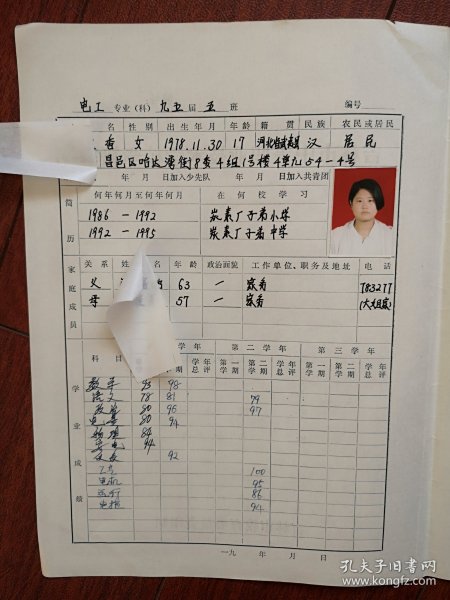 电工 专业（科）九五届 五 班 编号
名 性别 出生年月 年龄 籍贯 民族 农民或居民
香 女 1978.11.30 17 河北 汉 居民
昌邑区哈达湾街8委4组1号楼4单元54-4号
年 月 日加入少先队 年 月 日加入共青团
简历 何年何月至何年何月 在何校学习
1986 — 1992 炭素厂子弟小学
1992 — 1995 炭素厂子弟中学
家庭成员 关系 姓名 年龄 政治面貌 工作单位、职务及地址 电话
父 63 一 家务 783217
母 57 一 家务
学年 第二学年 第三学年
科目 学期 学年总评 第一学期 第二学期 学年总评 第一学期 第二学期 学年总评
学业成绩
数学 93 98
语文 78 81 79
政治 80 96 97
80 94
物理 84
94
92
100
电机 95
86
94
一九 年 月 日
孔夫子旧书网
www.kongfz.com